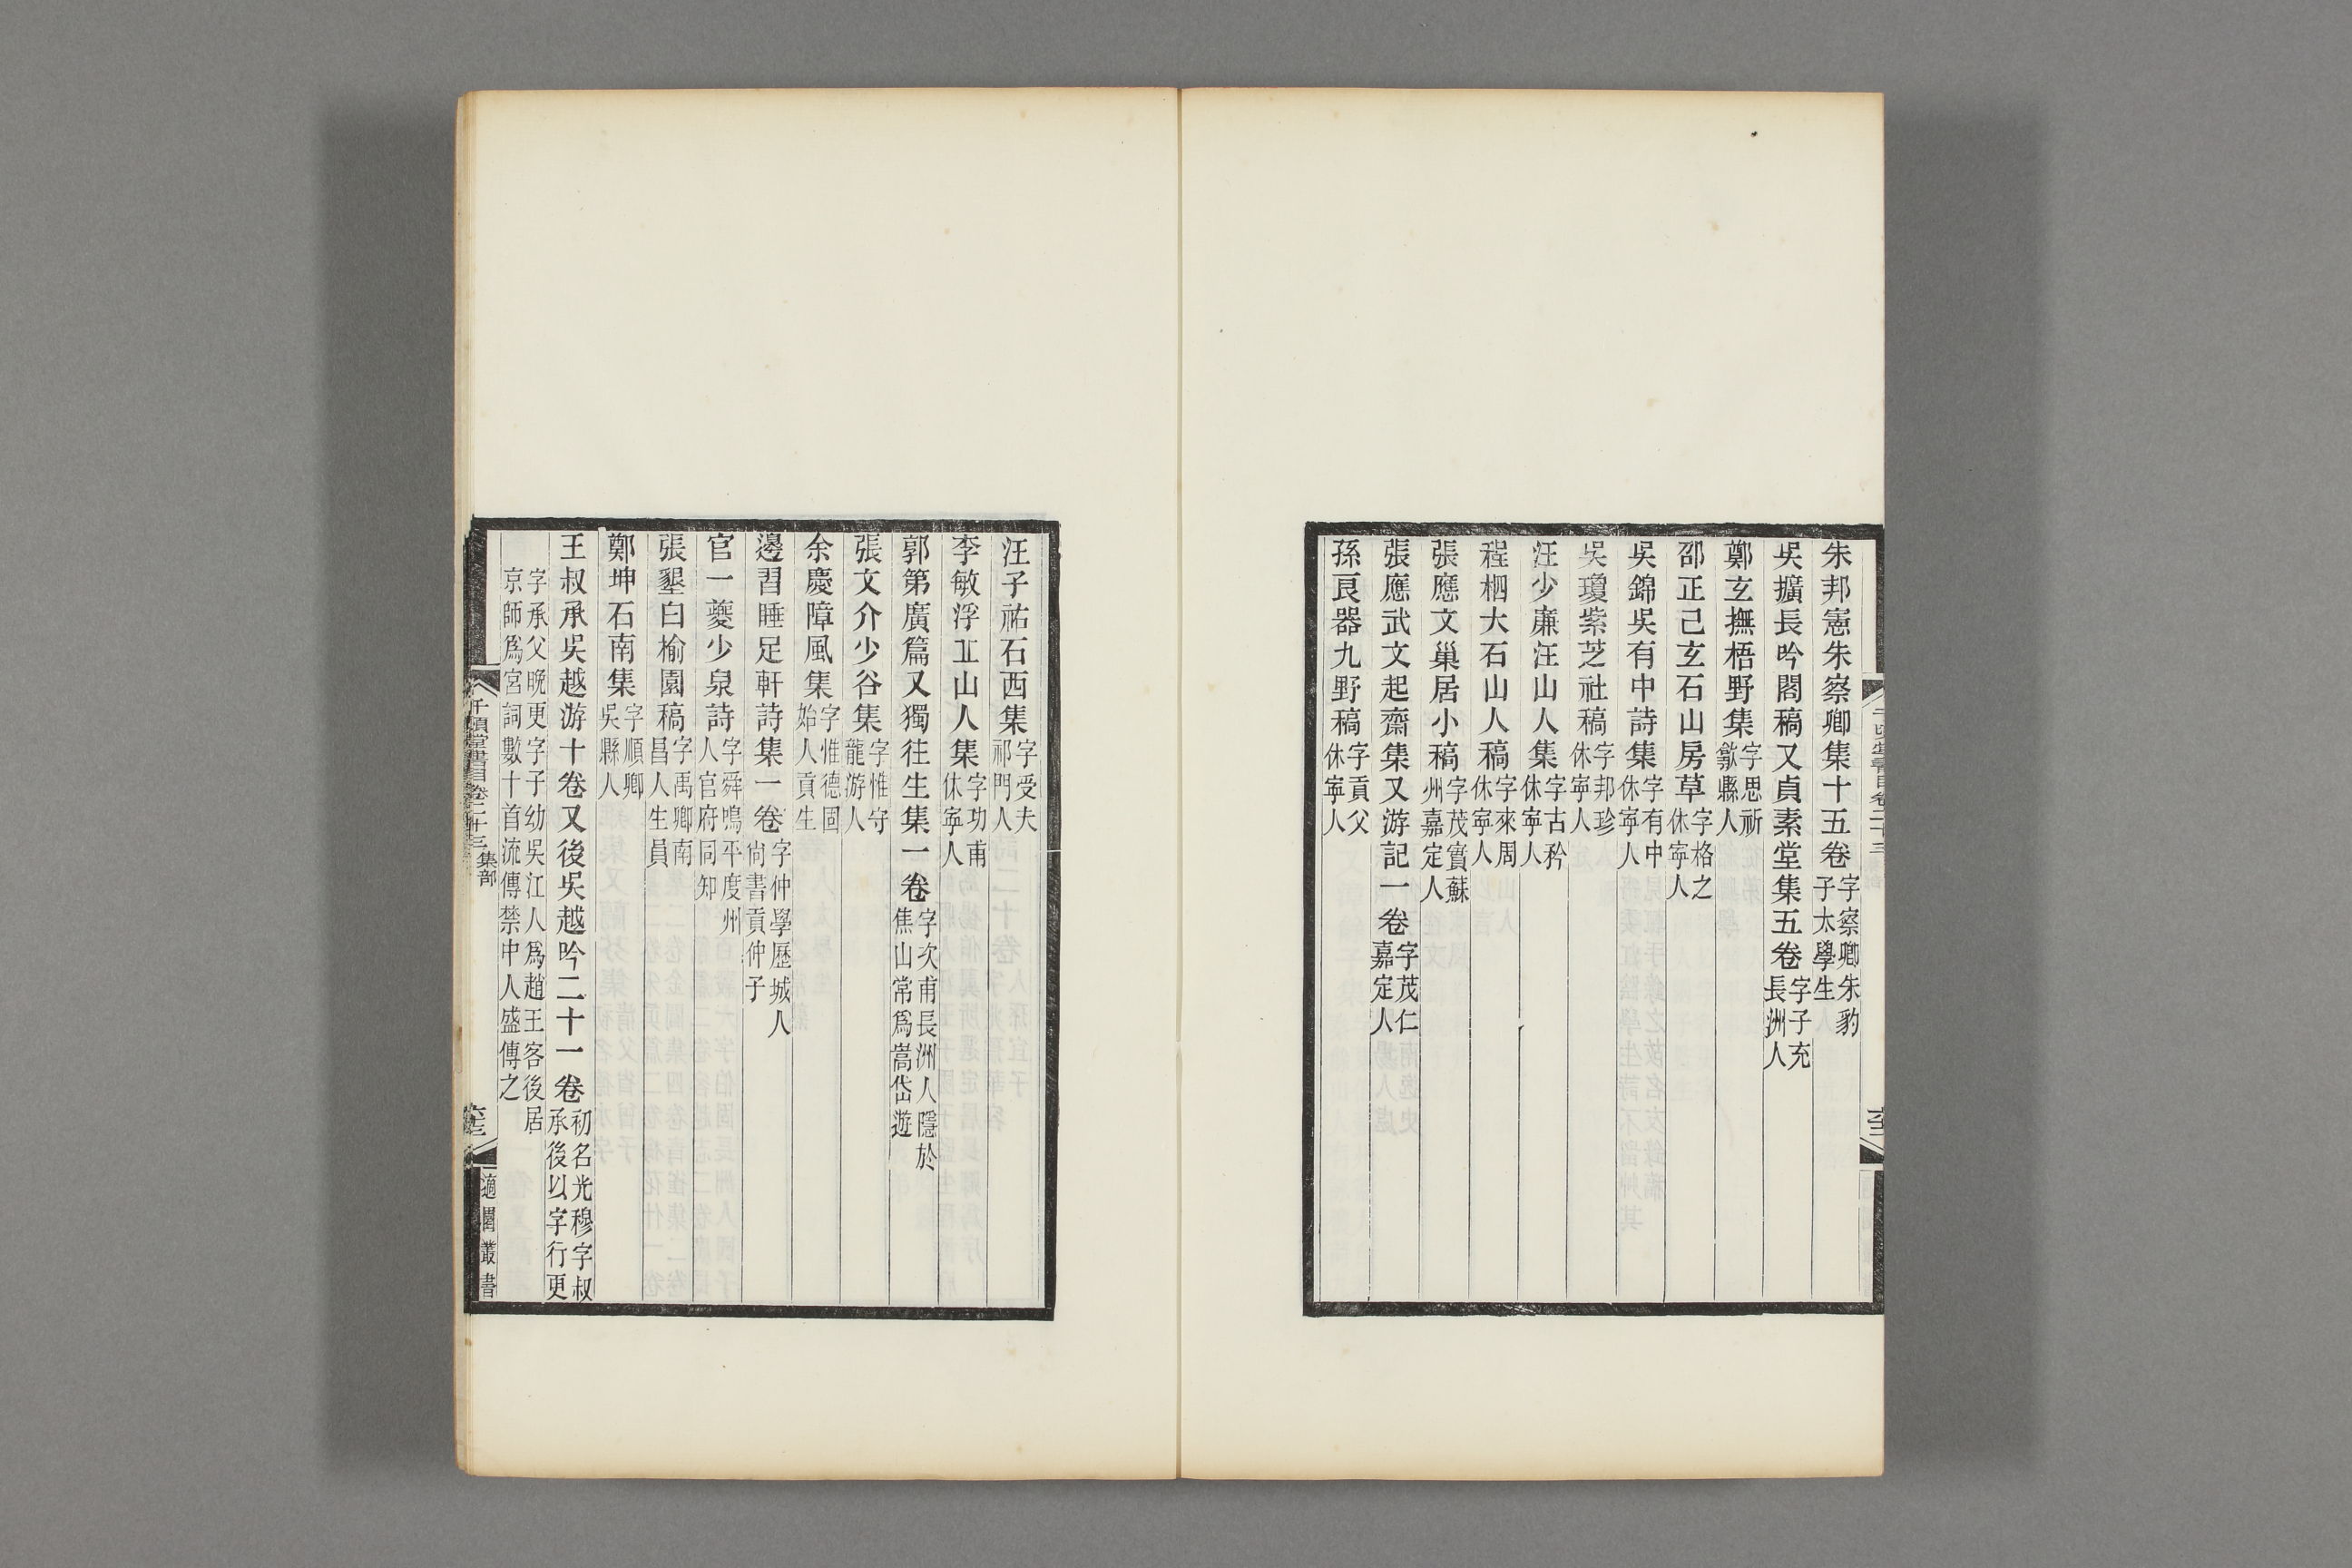 朱邦憲朱察卿集十五卷字察卿朱豹子太學生
吳擴長吟閣稿又貞素堂集五卷字子充長洲人
鄭玄撫梧野集字思祈歙縣人
邵正己玄石山房草字格之休寧人
吳錦吳有中詩集字有中休寧人
吳瓊紫芝社稿字邦珍休寧人
汪少廉汪山人集字古矜休寧人
程栖大石山人稿字來周休寧人
張應文巢居小稿字茂實蘇州嘉定人
張應武文起齋集又游記一卷字茂仁嘉定人
孫良器九野稿字貢父休寧人
汪子祐石西集字受夫祁門人
李敏浮丘山人集字功甫休寧人
郭第廣篇又獨往生集一卷字次甫長洲人隱於焦山常爲嵩岱遊
張文介少谷集字惟守龍游人
余慶障風集字惟德固始人貢生
邊習睡足軒詩集一卷字仲學歷城人尚書貢仲子
官一夔少泉詩字舜鳴平度州人官府同知
張墾白榆園稿字禹卿南昌人生員
鄭坤石南集字順卿吳縣人
王叔承吳越游十卷又後吳越吟二十一卷初名光穆字叔承後以字行更
字承父晚更字子幼吳江人爲趙王客後居京師爲宮詞數十首流傳禁中人盛傳之
千頃堂書目卷二十三 集部
適園叢書